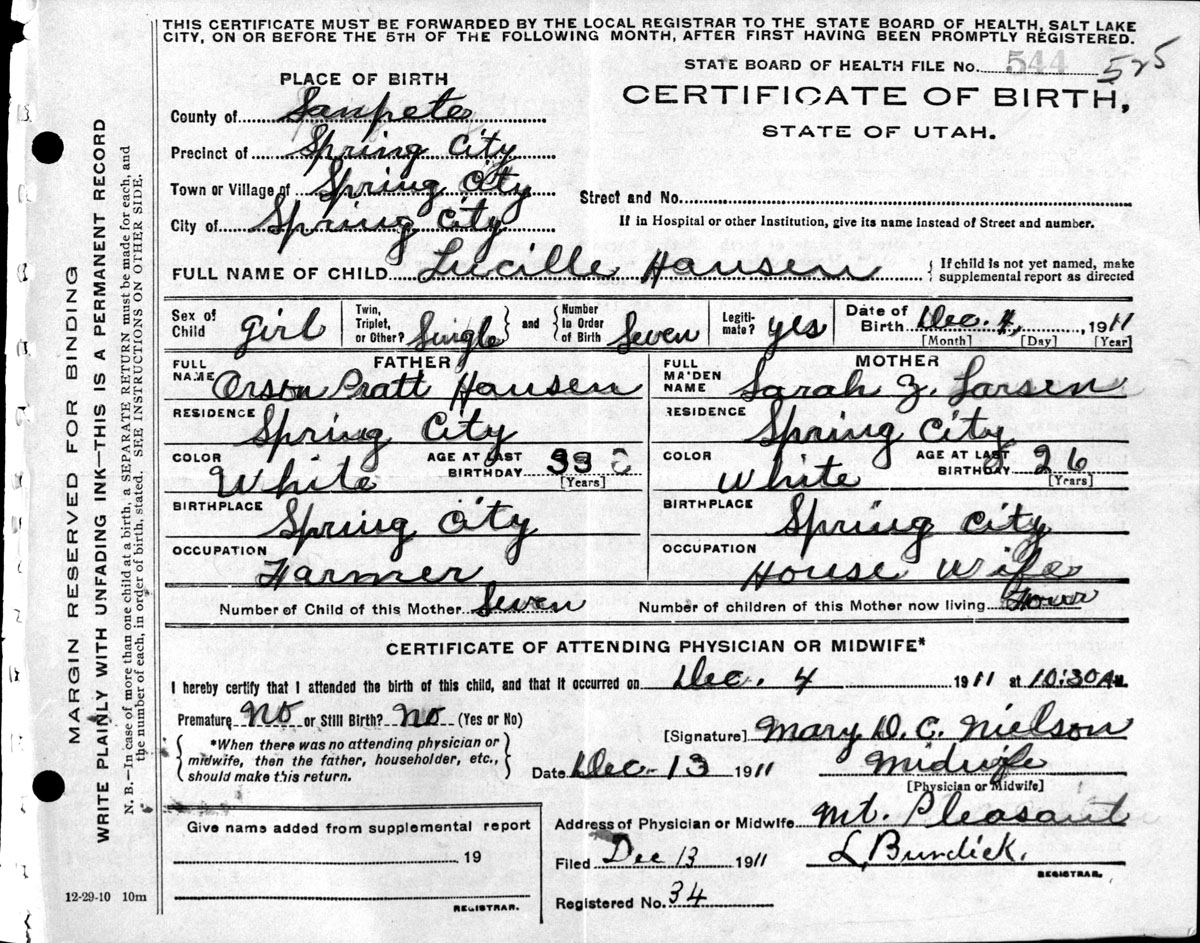 THIS CERTIFICATE MUST BE FORWARDED BY THE LOCAL REGISTRAR TO THE STATE BOARD OF HEALTH, SALT LAKE
CITY, ON OR BEFORE THE 5TH OF THE FOLLOWING MONTH, AFTER FIRST HAVING BEEN PROMPTLY REGISTERED.
STATE BOARD OF HEALTH FILE No. 544 525
CERTIFICATE OF BIRTH,
STATE OF UTAH.
PLACE OF BIRTH
County of Sanpete
Precinct of Spring City
Town or Village of Spring City
City of Spring City
Street and No.
If in Hospital or other Institution, give its name instead of Street and number.
FULL NAME OF CHILD Lucille Hansen
{ If child is not yet named, make
supplemental report as directed
Sex of Child Girl
Twin, Triplet, or Other? Single } and { Number In Order of Birth Seven
Legiti- mate? yes
Date of Birth Dec. 4, 1911
[Month] [Day] [Year]
FATHER
FULL NAME Orson Pratt Hansen
RESIDENCE
Spring City
COLOR White
AGE AT LAST BIRTHDAY 33
[Years]
BIRTHPLACE
Spring City
OCCUPATION
Farmer
MOTHER
FULL MAIDEN NAME Sarah Z. Larsen
RESIDENCE
Spring City
COLOR White
AGE AT LAST BIRTHDAY 26
[Years]
BIRTHPLACE
Spring City
OCCUPATION
House Wife
Number of Child of this Mother Seven Number of children of this Mother now living Fower
CERTIFICATE OF ATTENDING PHYSICIAN OR MIDWIFE*
I hereby certify that I attended the birth of this child, and that it occurred on Dec. 4 1911 at 10:30 AM.
Premature No or Still Birth? No (Yes or No)
{ *When there was no attending physician or
midwife, then the father, householder, etc.,
should make this return. }
[Signature] Mary D. C. Nielson
Date Dec - 13 1911 Midwife
[Physician or Midwife]
Give name added from supplemental report
19
REGISTRAR.
Address of Physician or Midwife Mt. Pleasant
Filed Dec 13 1911 L, Burdick.
REGISTRAR.
Registered No. 34
12-29-10 10m
MARGIN RESERVED FOR BINDING
WRITE PLAINLY WITH UNFADING INK—THIS IS A PERMANENT RECORD
N. B.—In case of more than one child at a birth, a SEPARATE RETURN must be made for each, and
the number of each, in order of birth, stated. SEE INSTRUCTIONS ON OTHER SIDE.